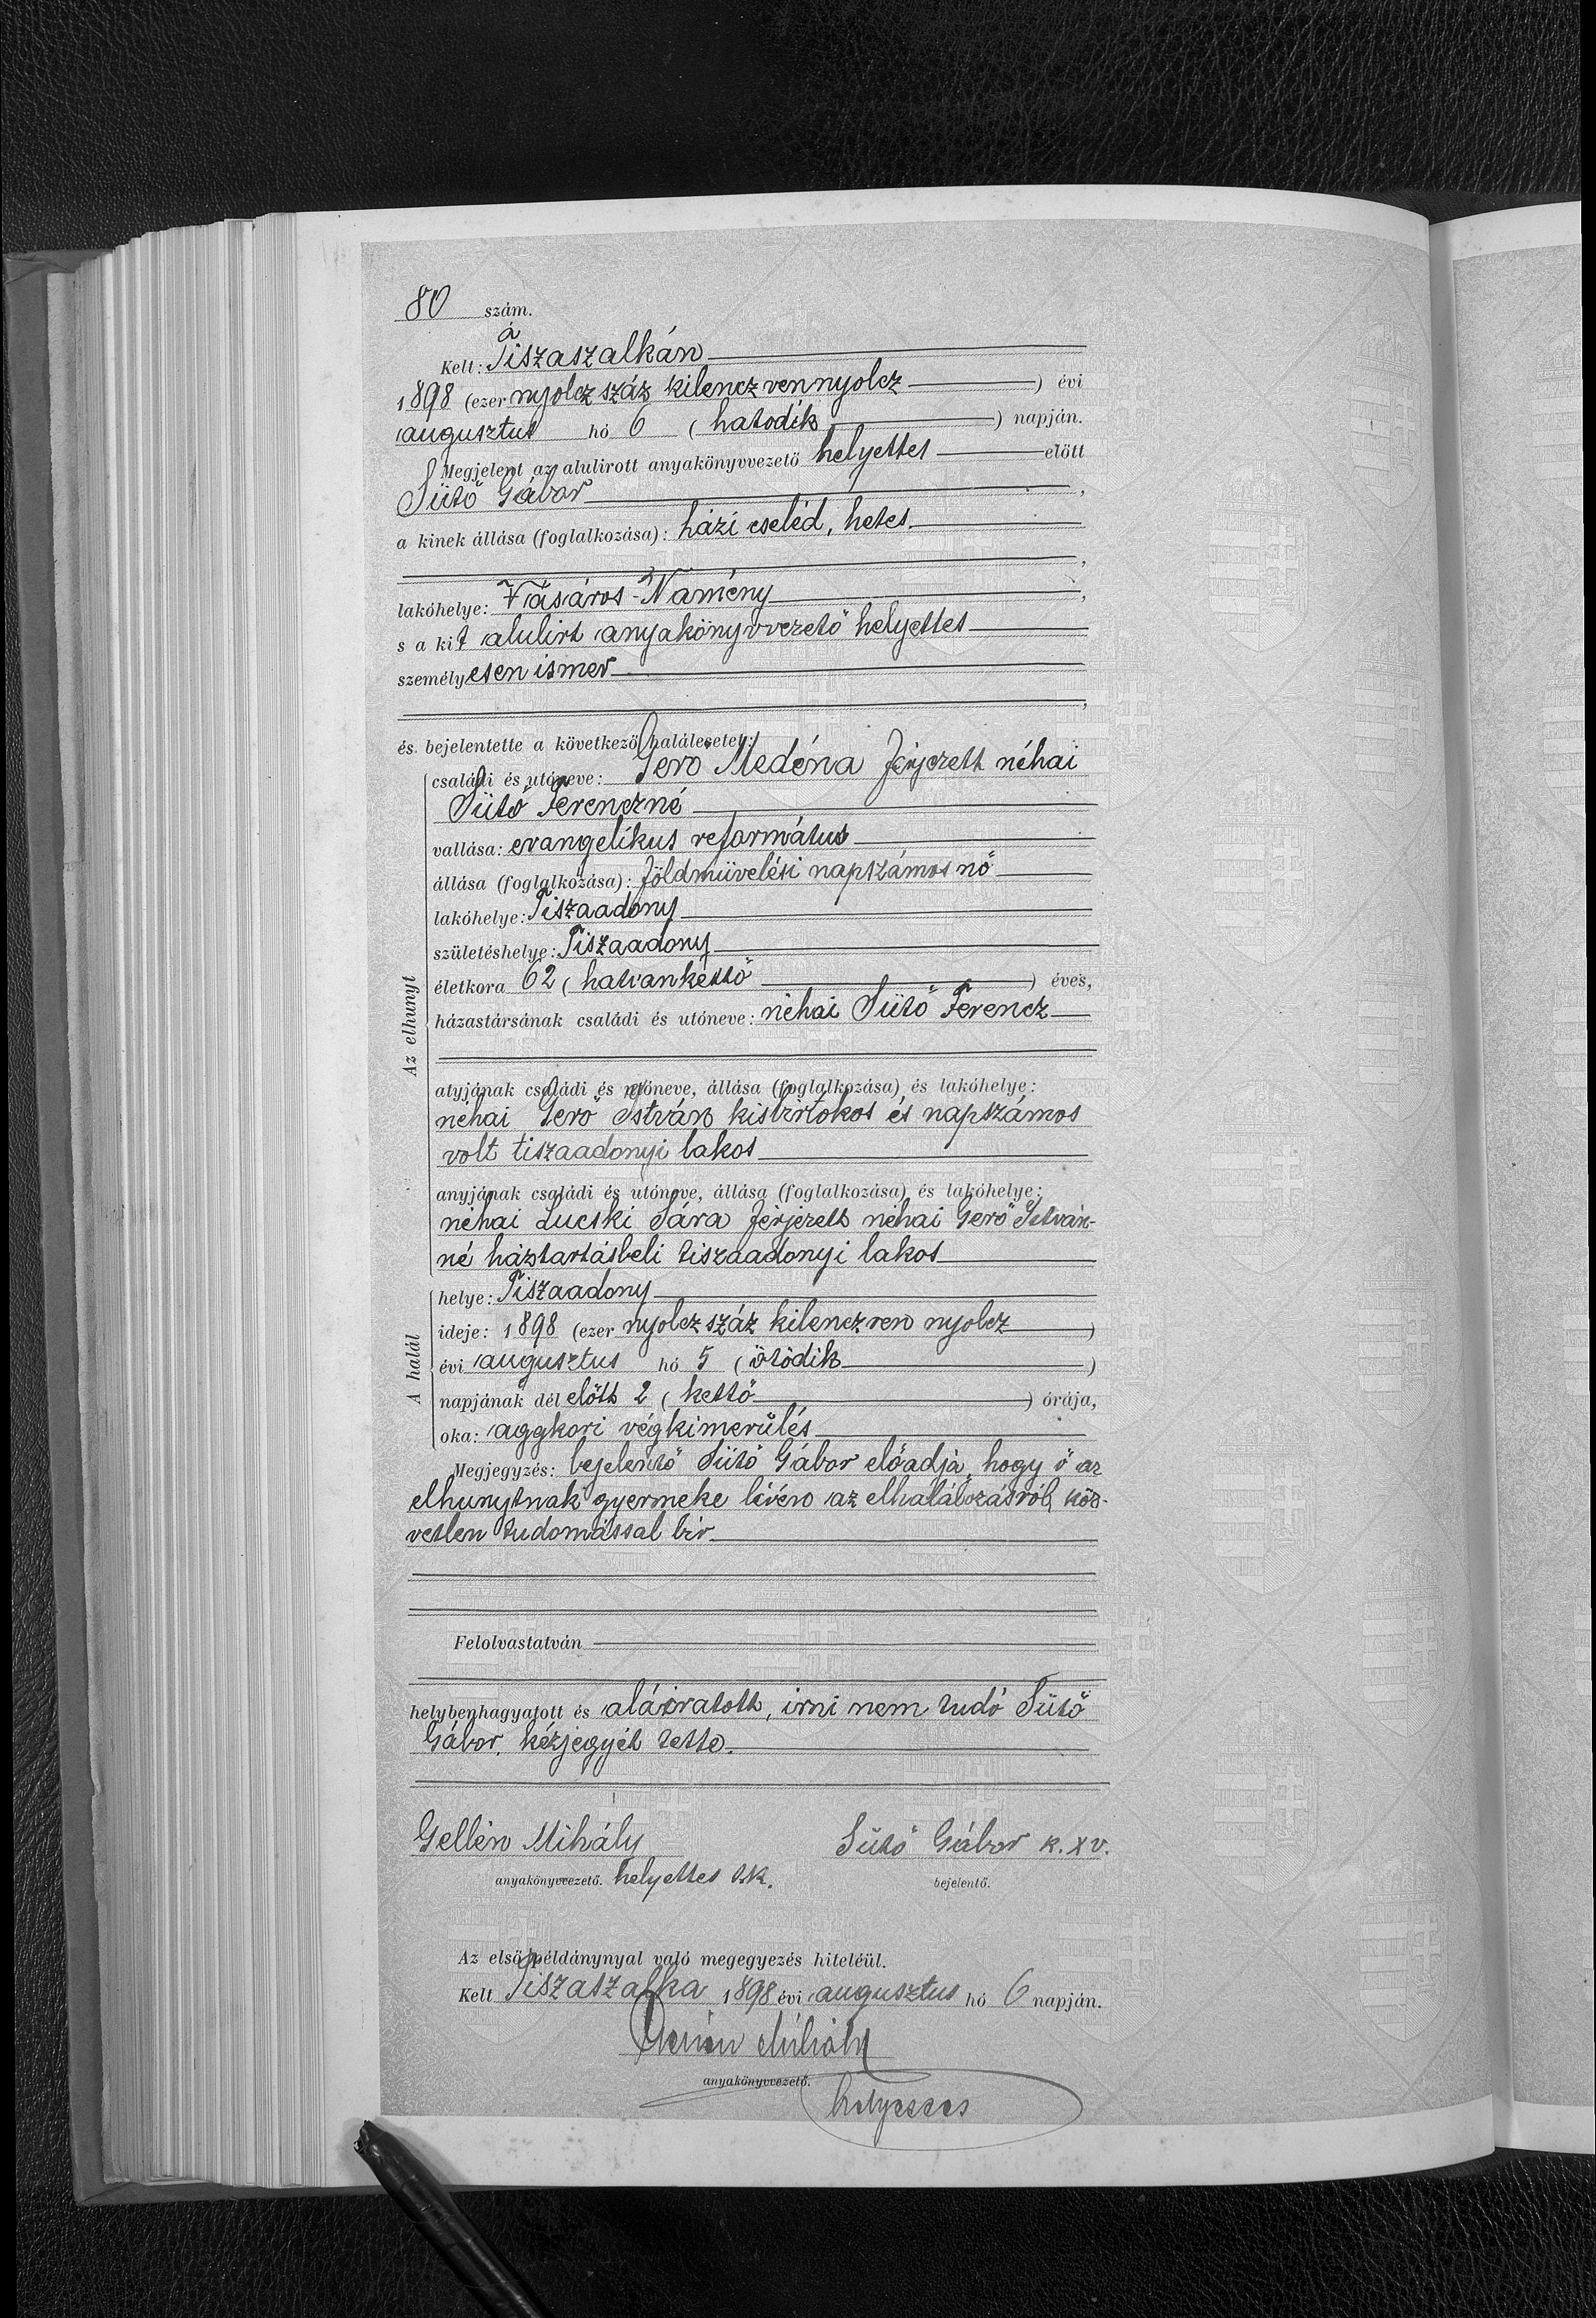 80 szám.
Kelt: Tiszaszalkán
1898 (ezer nyolcz száz kilenczvennyolcz) évi
augusztus hó 6 (hatodik) napján.
Megjelent az alulirott anyakönyvvezető helyettes előtt
Sütő Gábor,
a kinek állása (foglalkozása): házi cseléd, hetes,
lakóhelye: Vásáros-Namény,
s a kit alulirt anyakönyvvezető helyettes
személyesen ismer,
és bejelentette a következő halálesetet:
Az elhunyt
családi és utóneve: Gerő Medéna férjezett néhai
Sütő Ferenczné
vallása: evangelikus református
állása (foglalkozása): földmüvelési napszámos nő
lakóhelye: Tiszaadony
születéshelye: Tiszaadony
életkora 62 (hatvankettő) éves,
házastársának családi és utóneve: néhai Sütő Ferencz
atyjának családi és utóneve, állása (foglalkozása) és lakóhelye:
néhai Gerő István kisbirtokos és napszámos
volt tiszaadonyi lakos
anyjának családi és utóneve, állása (foglalkozása) és lakóhelye:
néhai Lucski Sára férjezett néhai Gerő István-
né háztartásbeli tiszaadonyi lakos
A halál
helye: Tiszaadony
ideje: 1898 (ezer nyolcz száz kilenczven nyolcz)
évi augusztus hó 5 (ötödik)
napjának dél előtt 2 (kettő) órája,
oka: aggkori végkimerülés
Megjegyzés: bejelentő Sütő Gábor előadja, hogy ő az
elhunytnak gyermeke lévén az elhalálozásról köz-
vetlen tudomással bir
Felolvastatván
helybenhagyatott és aláiratott, irni nem tudó Sütő
Gábor, kézjegyét tette.
Gellén Mihály
Sütő Gábor k. xv.
anyakönyvvezető. helyettes s.k.
bejelentő.
Az első példánynyal való megegyezés hiteléül.
Kelt Tiszaszalka 1898 évi augusztus hó 6 napján.
Gellén Mihály
anyakönyvvezető.
helyettes